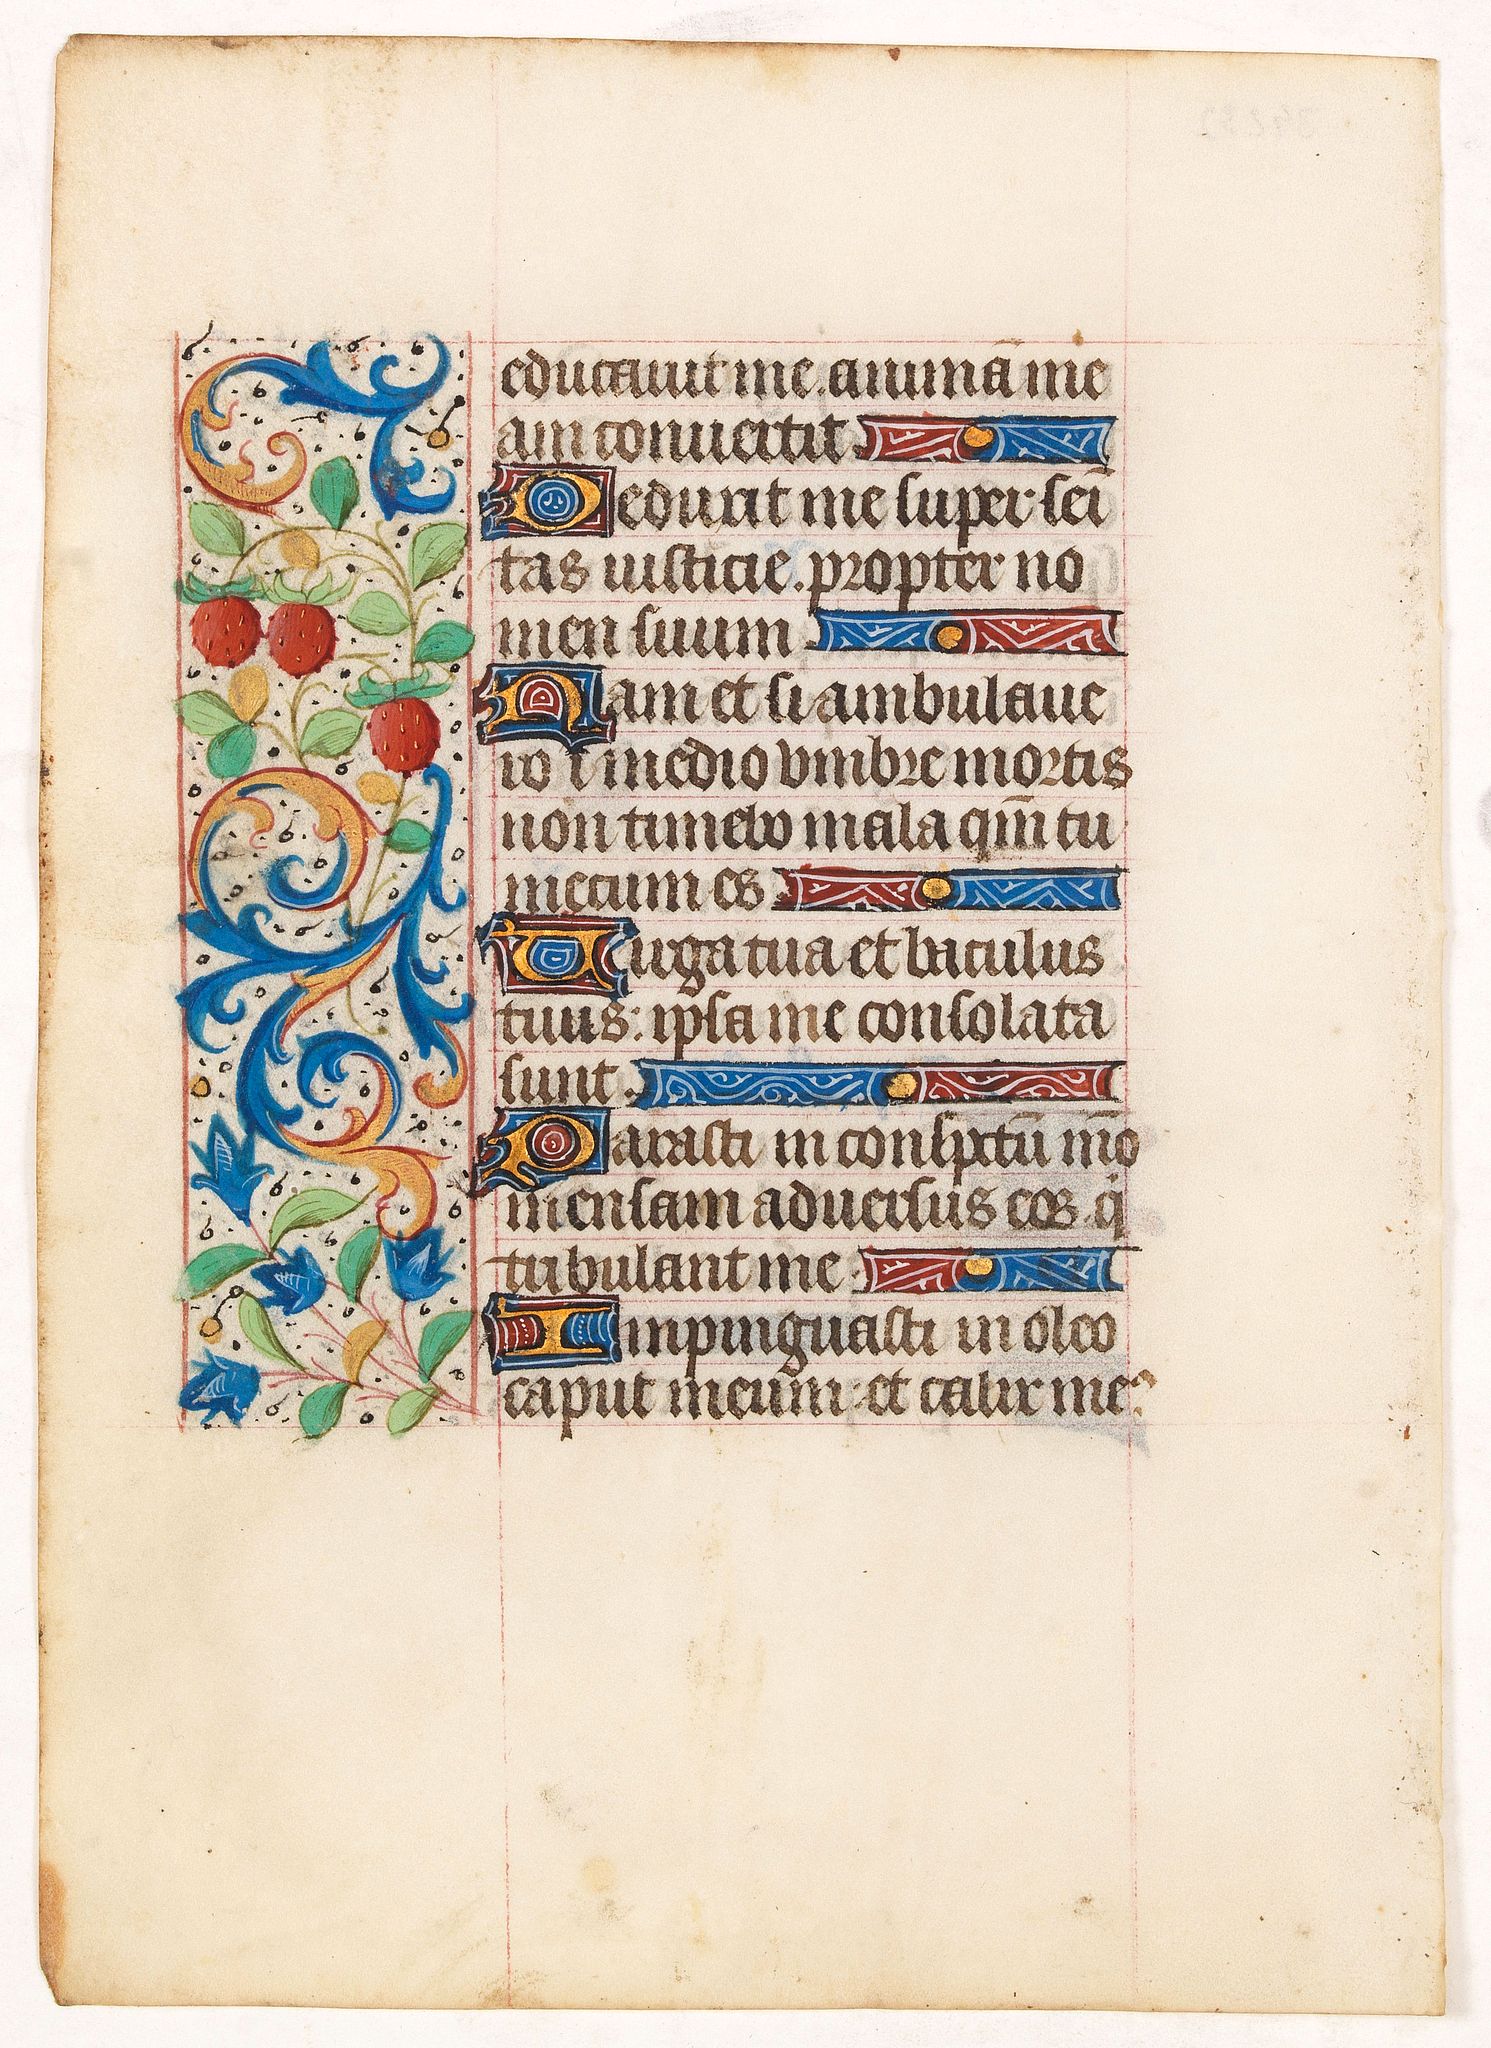 educauit me. animā me
am conuertit
Deduxit me super semi
tas iusticie. propter no
men suum
Nam et si ambulaue
ro ī medio vmbre mortis
non timebo mala qm̄ tu
mecum es
Uirga tua et baculus
tuus: ipsa me consolata
sunt.
Parasti in conspctū mō
mensam aduersus eos q̇
tribulant me
Inpinguasti in oleo
caput meum: et calix me᷒